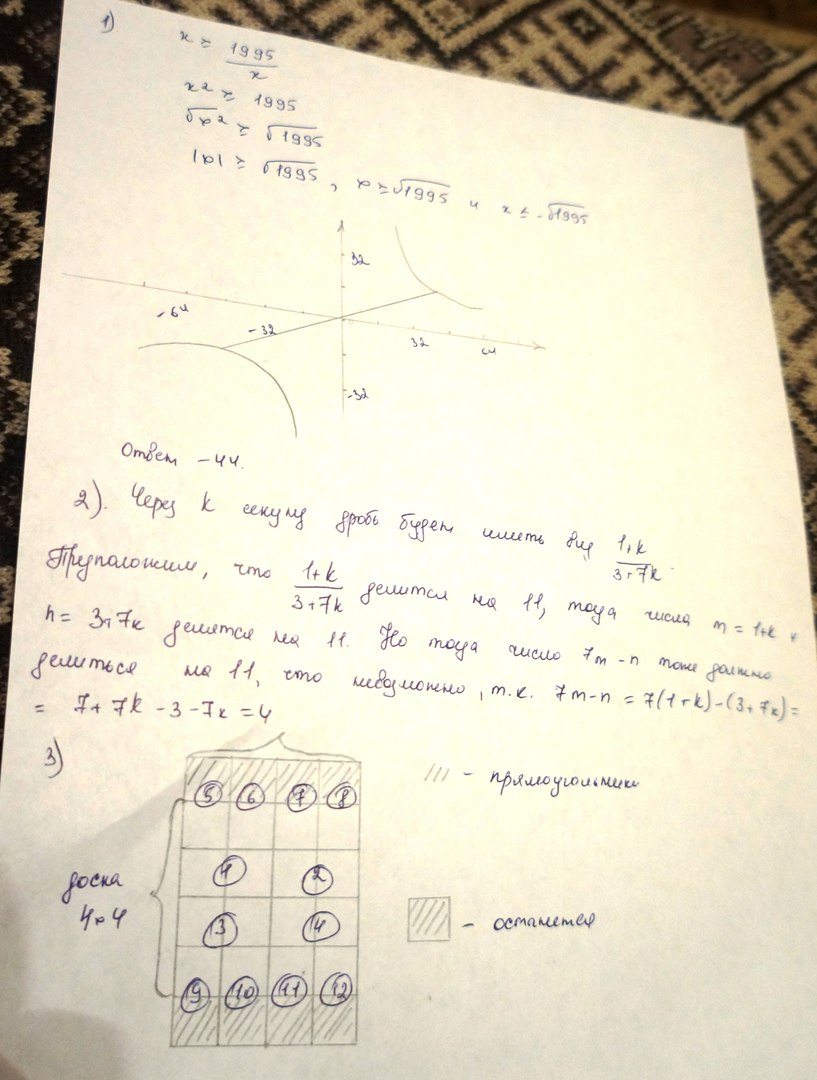 1)
x ≥ 1995/x
x² ≥ 1995
√x² ≥ √1995
|x| ≥ √1995, x ≥ √1995 и x ≤ -√1995
32
-64
-32
32
64
-32
Ответ -44.
2). Через k секунд дробь будет иметь вид 1+k/3+7k.
Предположим, что 1+k/3+7k делится на 11, тогда числа m = 1+k и
n = 3+7k делятся на 11. Но тогда число 7m-n тоже должно
делиться на 11, что невозможно, т.к. 7m-n = 7(1+k)-(3+7k)=
= 7+7k-3-7k=4
3)
5 6 7 8
/// - прямоугольники
1 2
доска
4x4
3 4
- останется
9 10 11 12